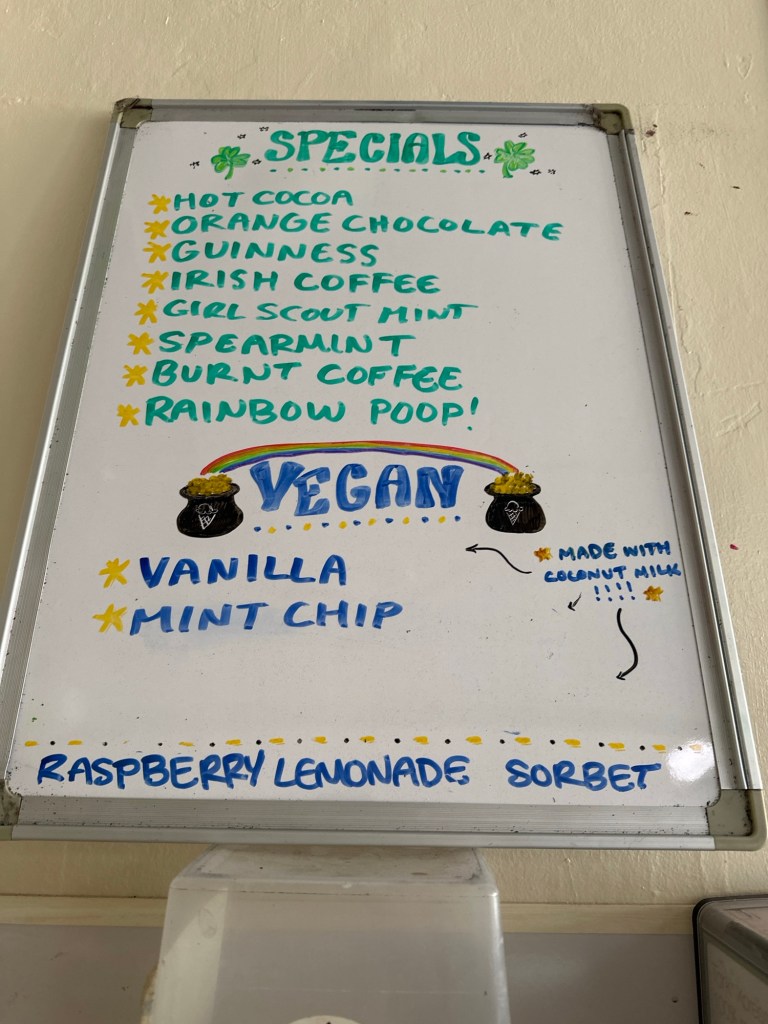 SPECIALS
HOT COCOA
ORANGE CHOCOLATE
GUINNESS
IRISH COFFEE
GIRL SCOUT MINT
SPEARMINT
BURNT COFFEE
RAINBOW POOP!
VEGAN
VANILLA
MINT CHIP
MADE WITH
COCONUT MILK
!!!!
RASPBERRY LEMONADE SORBET